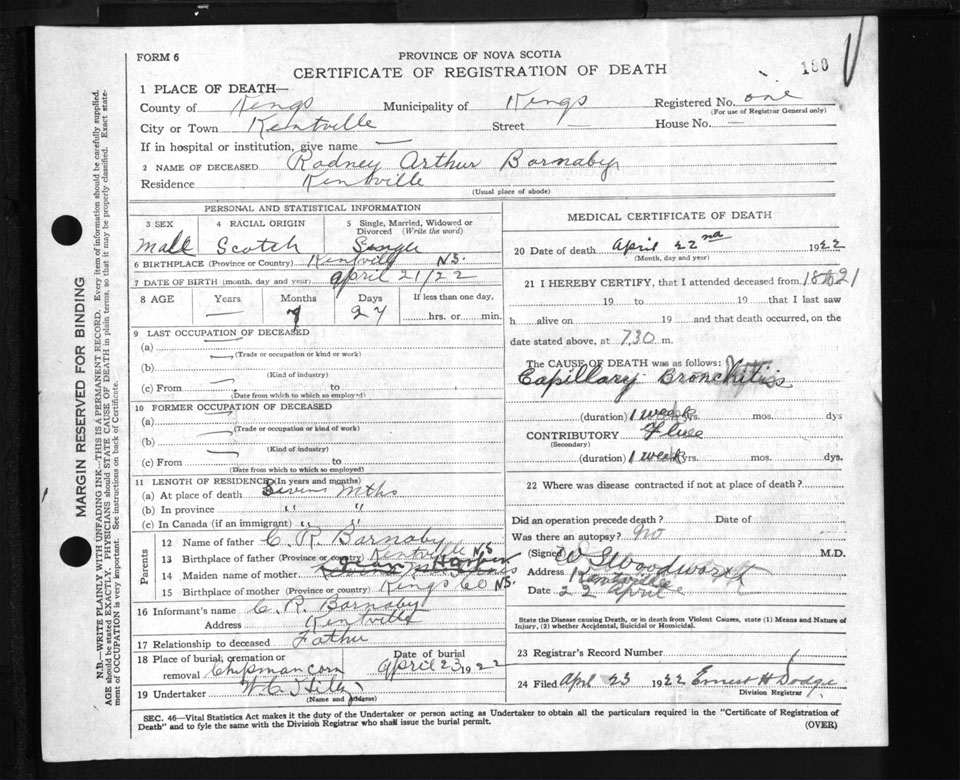 180
FORM 6
PROVINCE OF NOVA SCOTIA
CERTIFICATE OF REGISTRATION OF DEATH
1 PLACE OF DEATH—
County of Kings Municipality of Kings Registered No. one
(For use of Registrar General only)
City or Town Kentville Street — House No. —
If in hospital or institution, give name —
2 NAME OF DECEASED Rodney Arthur Barnaby
Residence Kentville
(Usual place of abode)
PERSONAL AND STATISTICAL INFORMATION
3 SEX 4 RACIAL ORIGIN 5 Single, Married, Widowed or Divorced (Write the word)
Male Scotch Single
6 BIRTHPLACE (Province or Country) Kentville N.S.
7 DATE OF BIRTH (month, day and year) April 21/22
8 AGE Years Months Days If less than one day,
— 7 27 hrs. or min.
9 LAST OCCUPATION OF DECEASED
(a) —
(Trade or occupation or kind or work)
(b) —
(Kind of industry)
(c) From — to
(Date from which to which so employed)
10 FORMER OCCUPATION OF DECEASED
(a) —
(Trade or occupation or kind of work)
(b) —
(Kind of industry)
(c) From — to
(Date from which to which so employed)
11 LENGTH OF RESIDENCE (In years and months)
(a) At place of death Seven Mths
(b) In province " "
(c) In Canada (if an immigrant) " "
Parents
12 Name of father C. R. Barnaby
13 Birthplace of father (Province or country) Kentville N.S
14 Maiden name of mother
15 Birthplace of mother (Province or country) Kings Co N.S.
16 Informant's name C. R. Barnaby
Address Kentville
17 Relationship to deceased Father
18 Place of burial, cremation or removal Chipman corn Date of burial April 23 1922
19 Undertaker W. C.
(Name and address)
MEDICAL CERTIFICATE OF DEATH
20 Date of death April 22nd 1922
(Month, day and year)
21 I HEREBY CERTIFY, that I attended deceased from 18 to 21
19 to 19 that I last saw
h alive on 19 and that death occurred, on the
date stated above, at 730 m.
The CAUSE OF DEATH was as follows:
Capillary Bronchitis
(duration) 1 week yrs. mos. dys
CONTRIBUTORY Flue
(Secondary)
(duration) 1 week yrs. mos. dys.
22 Where was disease contracted if not at place of death?
Did an operation precede death? Date of
Was there an autopsy? No
(Signed) W Woodworth M.D.
Address Kentville
Date 22 April
State the Disease causing Death, or in death from Violent Causes, state (1) Means and Nature of Injury, (2) whether Accidental, Suicidal or Homicidal.
23 Registrar's Record Number
24 Filed April 23 1922 Ernest H Dodge
Division Registrar
SEC. 46—Vital Statistics Act makes it the duty of the Undertaker or person acting as Undertaker to obtain all the particulars required in the "Certificate of Registration of
Death" and to fyle the same with the Division Registrar who shall issue the burial permit. (OVER)
MARGIN RESERVED FOR BINDING
N.B.—WRITE PLAINLY WITH UNFADING INK—THIS IS A PERMANENT RECORD. Every item of information should be carefully supplied.
AGE should be stated EXACTLY. PHYSICIANS should STATE CAUSE OF DEATH in plain terms, so that it may be properly classified. Exact statement of OCCUPATION is very important. See instructions on back of Certificate.